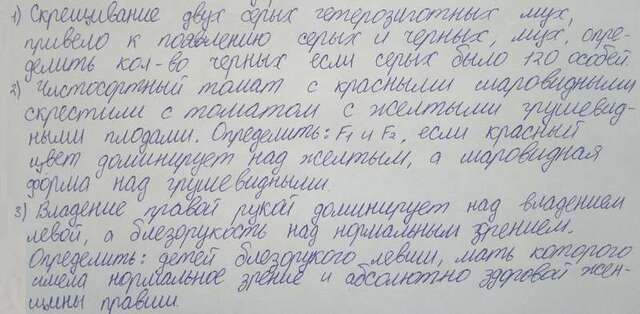 1) Скрещивание двух серых гетерозиготных мух,
привело к появлению серых и черных, мух, опре-
делить кол-во черных если серых было 120 особей.
2) Чистосортный томат с красными шаровидными
скрестили с томатом с желтыми грушевид-
ными плодами. Определить: F1 и F2, если красный
цвет доминирует над желтым, а шаровидная
форма над грушевидными.
3) Владение правой рукой доминирует над владением
левой, а близорукость над нормальным зрением.
Определить: детей близорукого левши, мать которого
имела нормальное зрение и абсолютно здоровой жен-
щины правши.